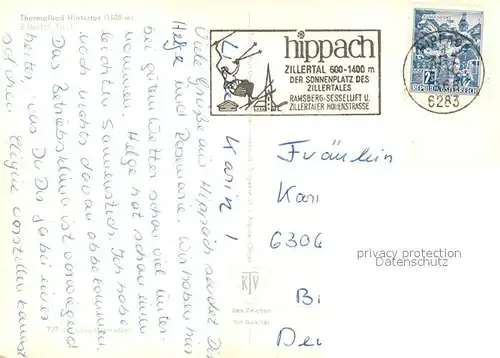 Thermalbad Hintertux (1500 m)
Zillertal, Tirol
hippach
ZILLERTAL 600-1400 m
DER SONNENPLATZ DES
ZILLERTALES
RAMSBERG-SESSELLIFT U.
ZILLERTALER HÖHENSTRASSE
6283
REPUBLIK ÖSTERREICH
Liebe Karin!
Viele Grüße aus Hippach sendet Dir
Helge und Rosmarie. Wir haben hier
bei gutem Wetter schon viel unter-
nommen. Helge hat schon einen
leichten Sonnenstich. Ich habe
noch nichts davon abbekommen.
Das Betriebsklima ist vorwiegend
heiter, was Du Dir ja bei einer
solchen Clique vorstellen kannst
Fräulein
Kari
6306
Bi
Deu
privacy protection
Datenschutz
KTV